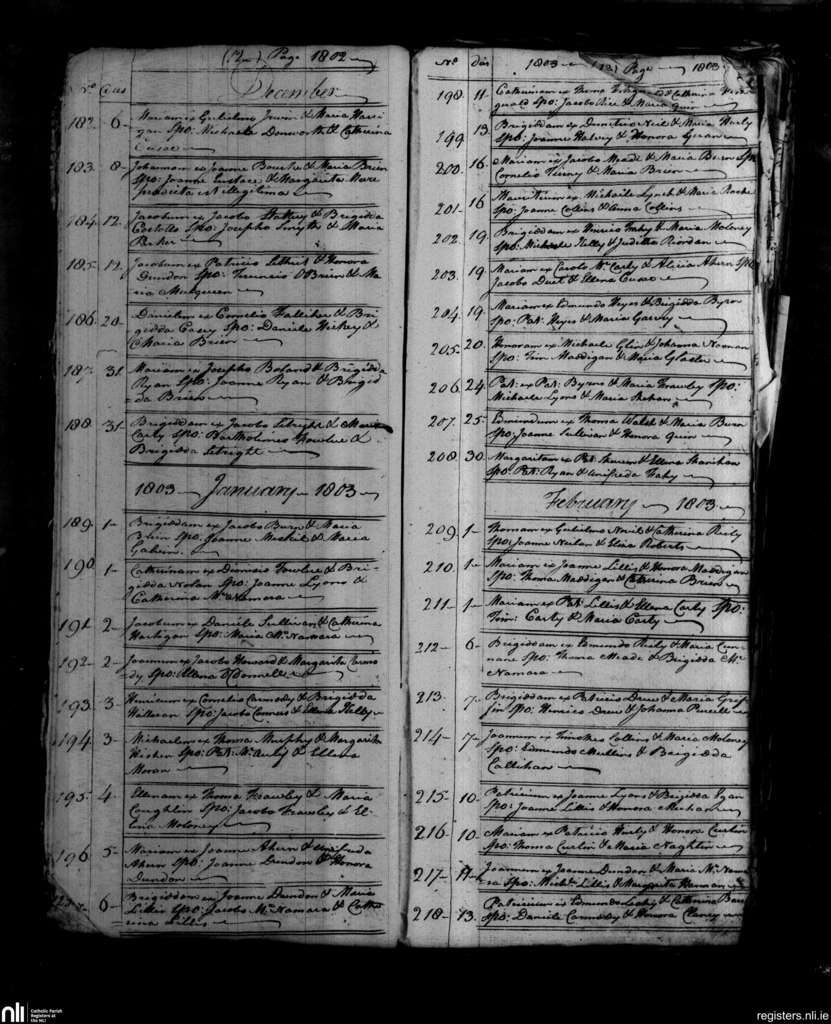 (12) Page 1802
December
Nº Dies
182 6 Mariam ex Gulielmo Irwin & Maria Harri
gan Spo: Michaele Donworth & Catherina
Cusac
183. 8 Johannam ex Joanne Bourke & Maria Brien
Spo: Joanne Eustace & Margarita
illegitima
184. 12. Jacobum ex Jacobo & Brigidda
Costello Spo: Josepho Smyth & Maria
Parker
185. 12. Jacobum ex Patricio & Honora
Dundon Spo: Terencio O Brien & Ma
ria Mulqueen
186. 20 Danielem ex Cornelio Falliher & Bri
gidda Casey Spo: Daniele Hickey &
Maria Brien
187. 31. Mariam ex Josepho Boland & Brigidda
Ryan Spo: Joanne Ryan & Brigid
da Brien
188. 31 Brigiddam ex Jacobo & Maria
Carty Spo: Bartholomeo Fowlue &
Brigidda
1803 January 1803
189. 1 Brigiddam ex Jacobo Burn & Maria
Brien Spo: Joanne & Maria
190. 1 Catherinam ex Dionisio Fowlue & Bri
gidda Nolan Spo: Joanne Lyons &
Catherina Mc Namara
191 2 Jacobum ex Daniele Sullivan & Catherina
Hartigan Spo: Maria Mc Namara
192 2 Joannem ex Jacobo Howard & Margarita Carmo
dy Spo: Ellena O'Donnell
193. 3 Henricum ex Cornelio Carmody & Brigidda
Halloran Spo: Jacobo Connors & Elena Kelly
194. 3 Michaelem ex Thoma Murphy & Margarita
Spo: Pat: Mc Auly & Ellena
Moran
195. 4. Ellenam ex Thoma Frawley & Maria
Coughlin Spo: Jacobo Frawley & El
lena Moloney
196. 5 Mariam ex Joanne Ahern & Unifreda
Ahern Spo: Joanne Dundon & Honora
Dundon
6 Brigiddam ex Joanne Dundon & Maria
Lillis Spo: Jacobo Mc Namara & Cathe
rina Lillis
Nº Dies 1803 (13) Page 1803
198. 11 Catherinam ex Thoma & Catherina
Spo: Jacobo Rice & Maria Quin
199 13 Brigiddam ex Demetrio Neil & Maria Hurly
Spo: Joanne Halvey & Honora
200. 16. Mariam ex Jacobo Meade & Maria Burn Spo:
Cornelio & Maria Brien
201 16 Mauritium ex Michaele Lynch & Maria Roche
Spo: Joanne Collins & Anna Collins
202. 19. Brigiddam ex Henrico Fahy & Maria Moloney
Spo: Michaele Kelly & Juditha Riordan
203. 19. Mariam ex Carolo Mc Carty & Alicia Ahern Spo:
Jacobo & Ellena Cusac
204. 19. Mariam ex Edmundo Heyes & Brigidda Byrn
Spo: Pat: Heyes & Maria Garvey
205. 20. Honoram ex Michaele Glin & Johanna Noonan
Spo: Tim: Maddigan & Maria
206. 24. Pat: ex Pat: Byrns & Maria Frawley Spo:
Michaele Lyons & Maria Mehan
207. 25. Edmundum ex Thoma Walsh & Maria Burn
Spo: Joanne Sullivan & Honora Quin
208. 30. Margaritam ex Pat: & Ellena Shanihan
Spo: Pat: Ryan & Unifreda Fahy
February 1803
209. 1 Thomam ex Gulielmo Neil & Catherina Reily
Spo: Joanne Neilan & Eliza Roberts
210. 1 Mariam ex Joanne Lillis & Honora Maddigan
Spo: Thoma Maddigan & Catherina Brien
211 1 Mariam ex Pat: Lillis & Ellena Carty Spo:
Tim: Carty & Maria Carty
212 6 Brigiddam ex Edmundo Reily & Maria Cun
nane Spo: Thoma Meade & Brigidda Mc
Namara
213. 7. Brigiddam ex Patricio Drew & Maria Grif
fin Spo: Henrico Drew & Johanna Purcell
214 7 Joannem ex Timotheo Collins & Maria Moloney
Spo: Edmundo Mullins & Brigidda
Callihan
215 10. Patricium ex Joanne Lyons & Brigidda Egan
Spo: Joanne Lillis & Honora Mechan
216 10. Mariam ex Patricio Hurly & Honora Curlin
Spo: Thoma Curlin & Maria Naghten
217 11 Joannem ex Joanne Dundon & Maria Mc Nama
ra Spo: Michl: Lillis & Margarita Hannan
218 13. Patricium ex Edmundo Leahy & Catherina
Spo: Daniele Carmody & Honora Clancy
nli Catholic Parish
Registers at
the NLI
registers.nli.ie